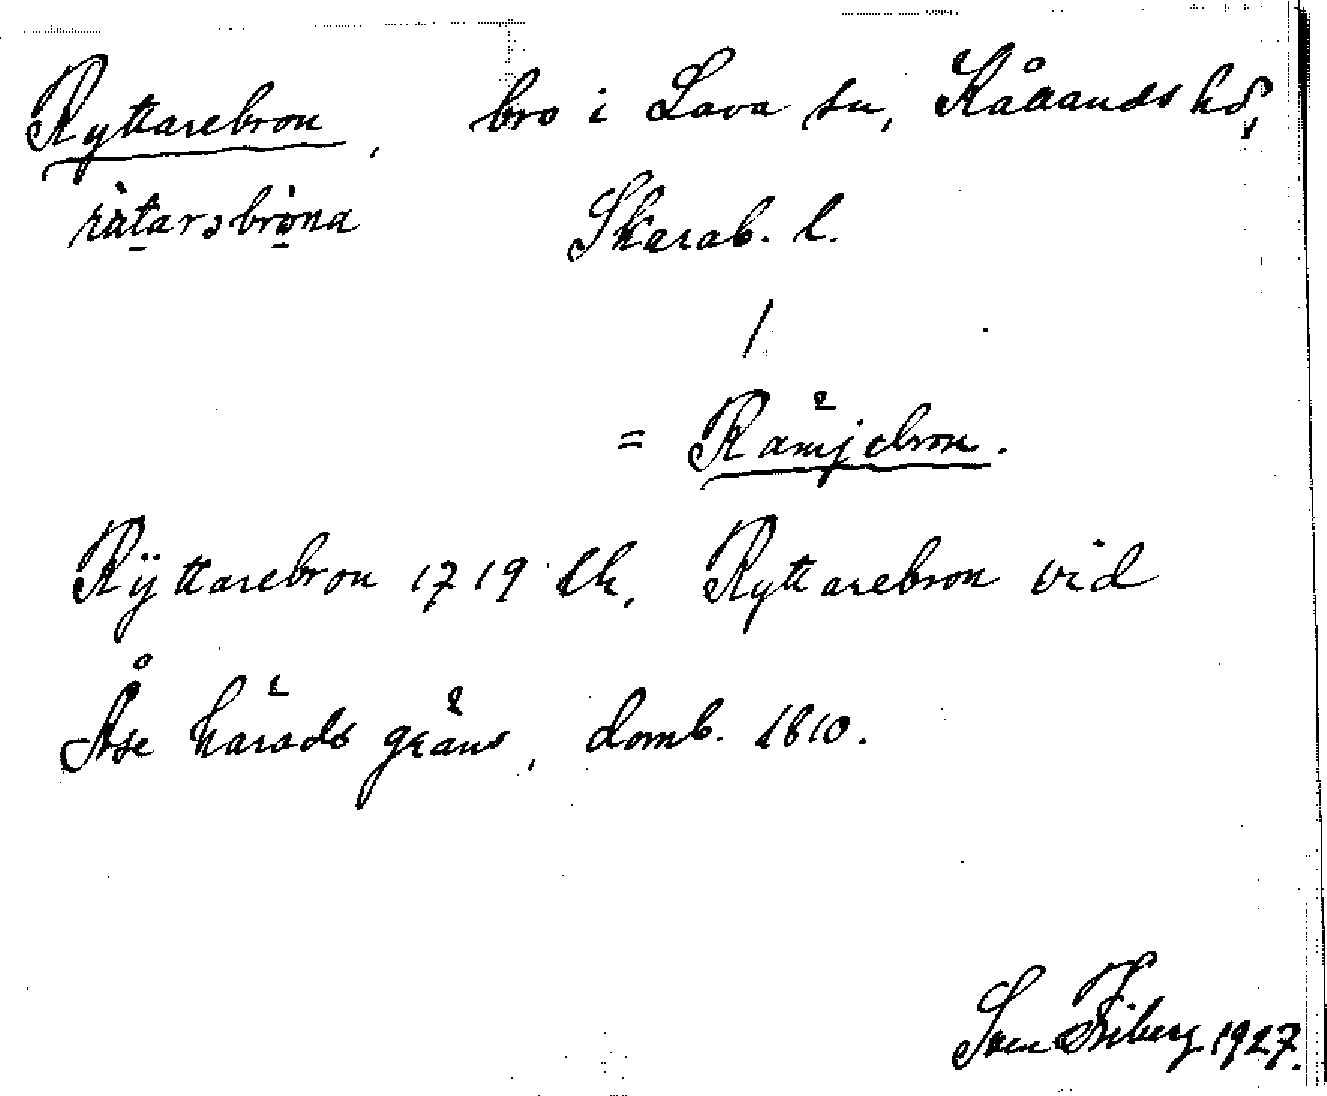 Ryttarebron, bro i Lava sn, Kållands hd,
rätarsbrona Skarab. l.
/
= Rämjebron.
Rÿttarebron 1719 lk, Ryttarebron vid
Åse härads gräns, domb. 1810.
Sven Friberg 1927.